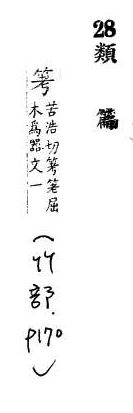 28
類篇
䇢
苦浩切䇢笔屈
木爲器文一
(竹部.P170)